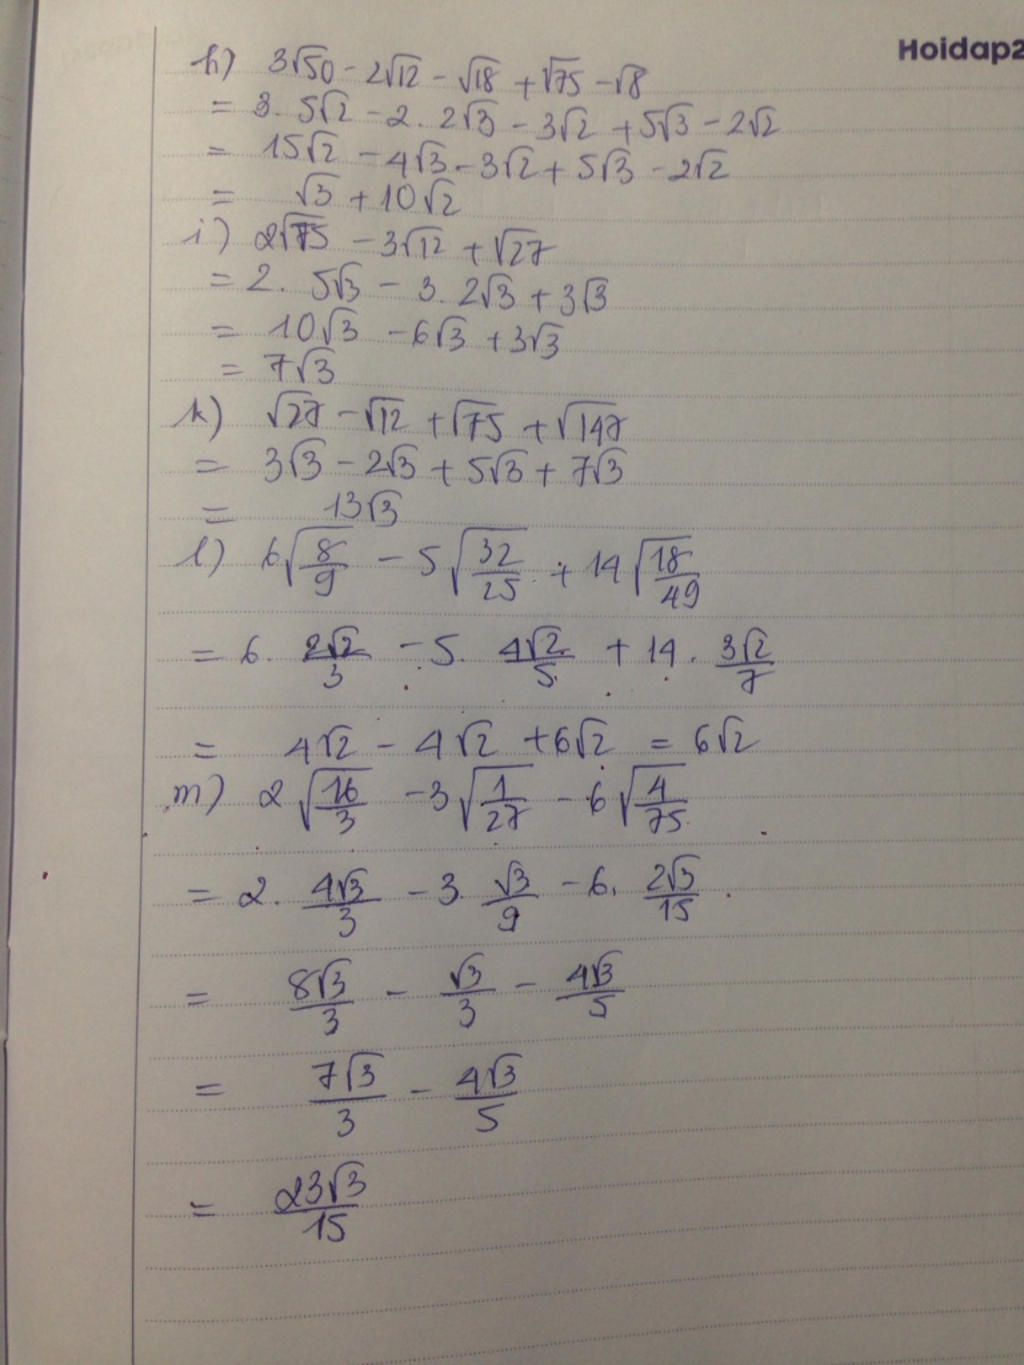 Hoidap2
h) 3√50 - 2√12 - √18 + √75 - √8
= 3. 5√2 - 2. 2√3 - 3√2 + 5√3 - 2√2
= 15√2 - 4√3 - 3√2 + 5√3 - 2√2
= √3 + 10√2
i) 2√75 - 3√12 + √27
= 2. 5√3 - 3. 2√3 + 3√3
= 10√3 - 6√3 + 3√3
= 7√3
k) √27 - √12 + √75 + √147
= 3√3 - 2√3 + 5√3 + 7√3
= 13√3
l) 6√(8/9) - 5√(32/25) + 14√(18/49)
= 6. 2√2/3 - 5. 4√2/5 + 14. 3√2/7
= 4√2 - 4√2 + 6√2 = 6√2
m) 2√(16/3) - 3√(1/27) - 6√(4/75)
= 2. 4√3/3 - 3. √3/9 - 6. 2√3/15
= 8√3/3 - √3/3 - 4√3/5
= 7√3/3 - 4√3/5
= 23√3/15